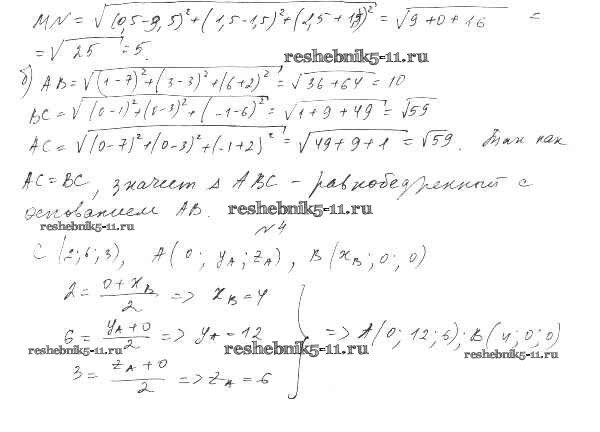 MN = √((0,5-9,5)²+(1,5-1,5)²+(2,5+1,5)²) = √(9+0+16) =
= √25 = 5.
reshebnik5-11.ru
б) AB = √((1-7)²+(3-3)²+(6+2)²) = √(36+64) = 10
BC = √((0-1)²+(0-3)²+(-1-6)²) = √(1+9+49) = √59
AC = √((0-7)²+(0-3)²+(-1+2)²) = √(49+9+1) = √59. Так как
AC = BC, значит Δ ABC - равнобедренный с
основанием AB. reshebnik5-11.ru
reshebnik5-11.ru
№4
C(2;6;3), A(0; y_A; z_A), B(x_B; 0; 0)
2 = (0+x_B)/2 => x_B = 4
6 = (y_A+0)/2 => y_A = 12 } => A(0; 12; 6); B(4; 0; 0)
reshebnik5-11.ru reshebnik5-11.ru reshebnik5-11.ru
3 = (z_A+0)/2 => z_A = 6